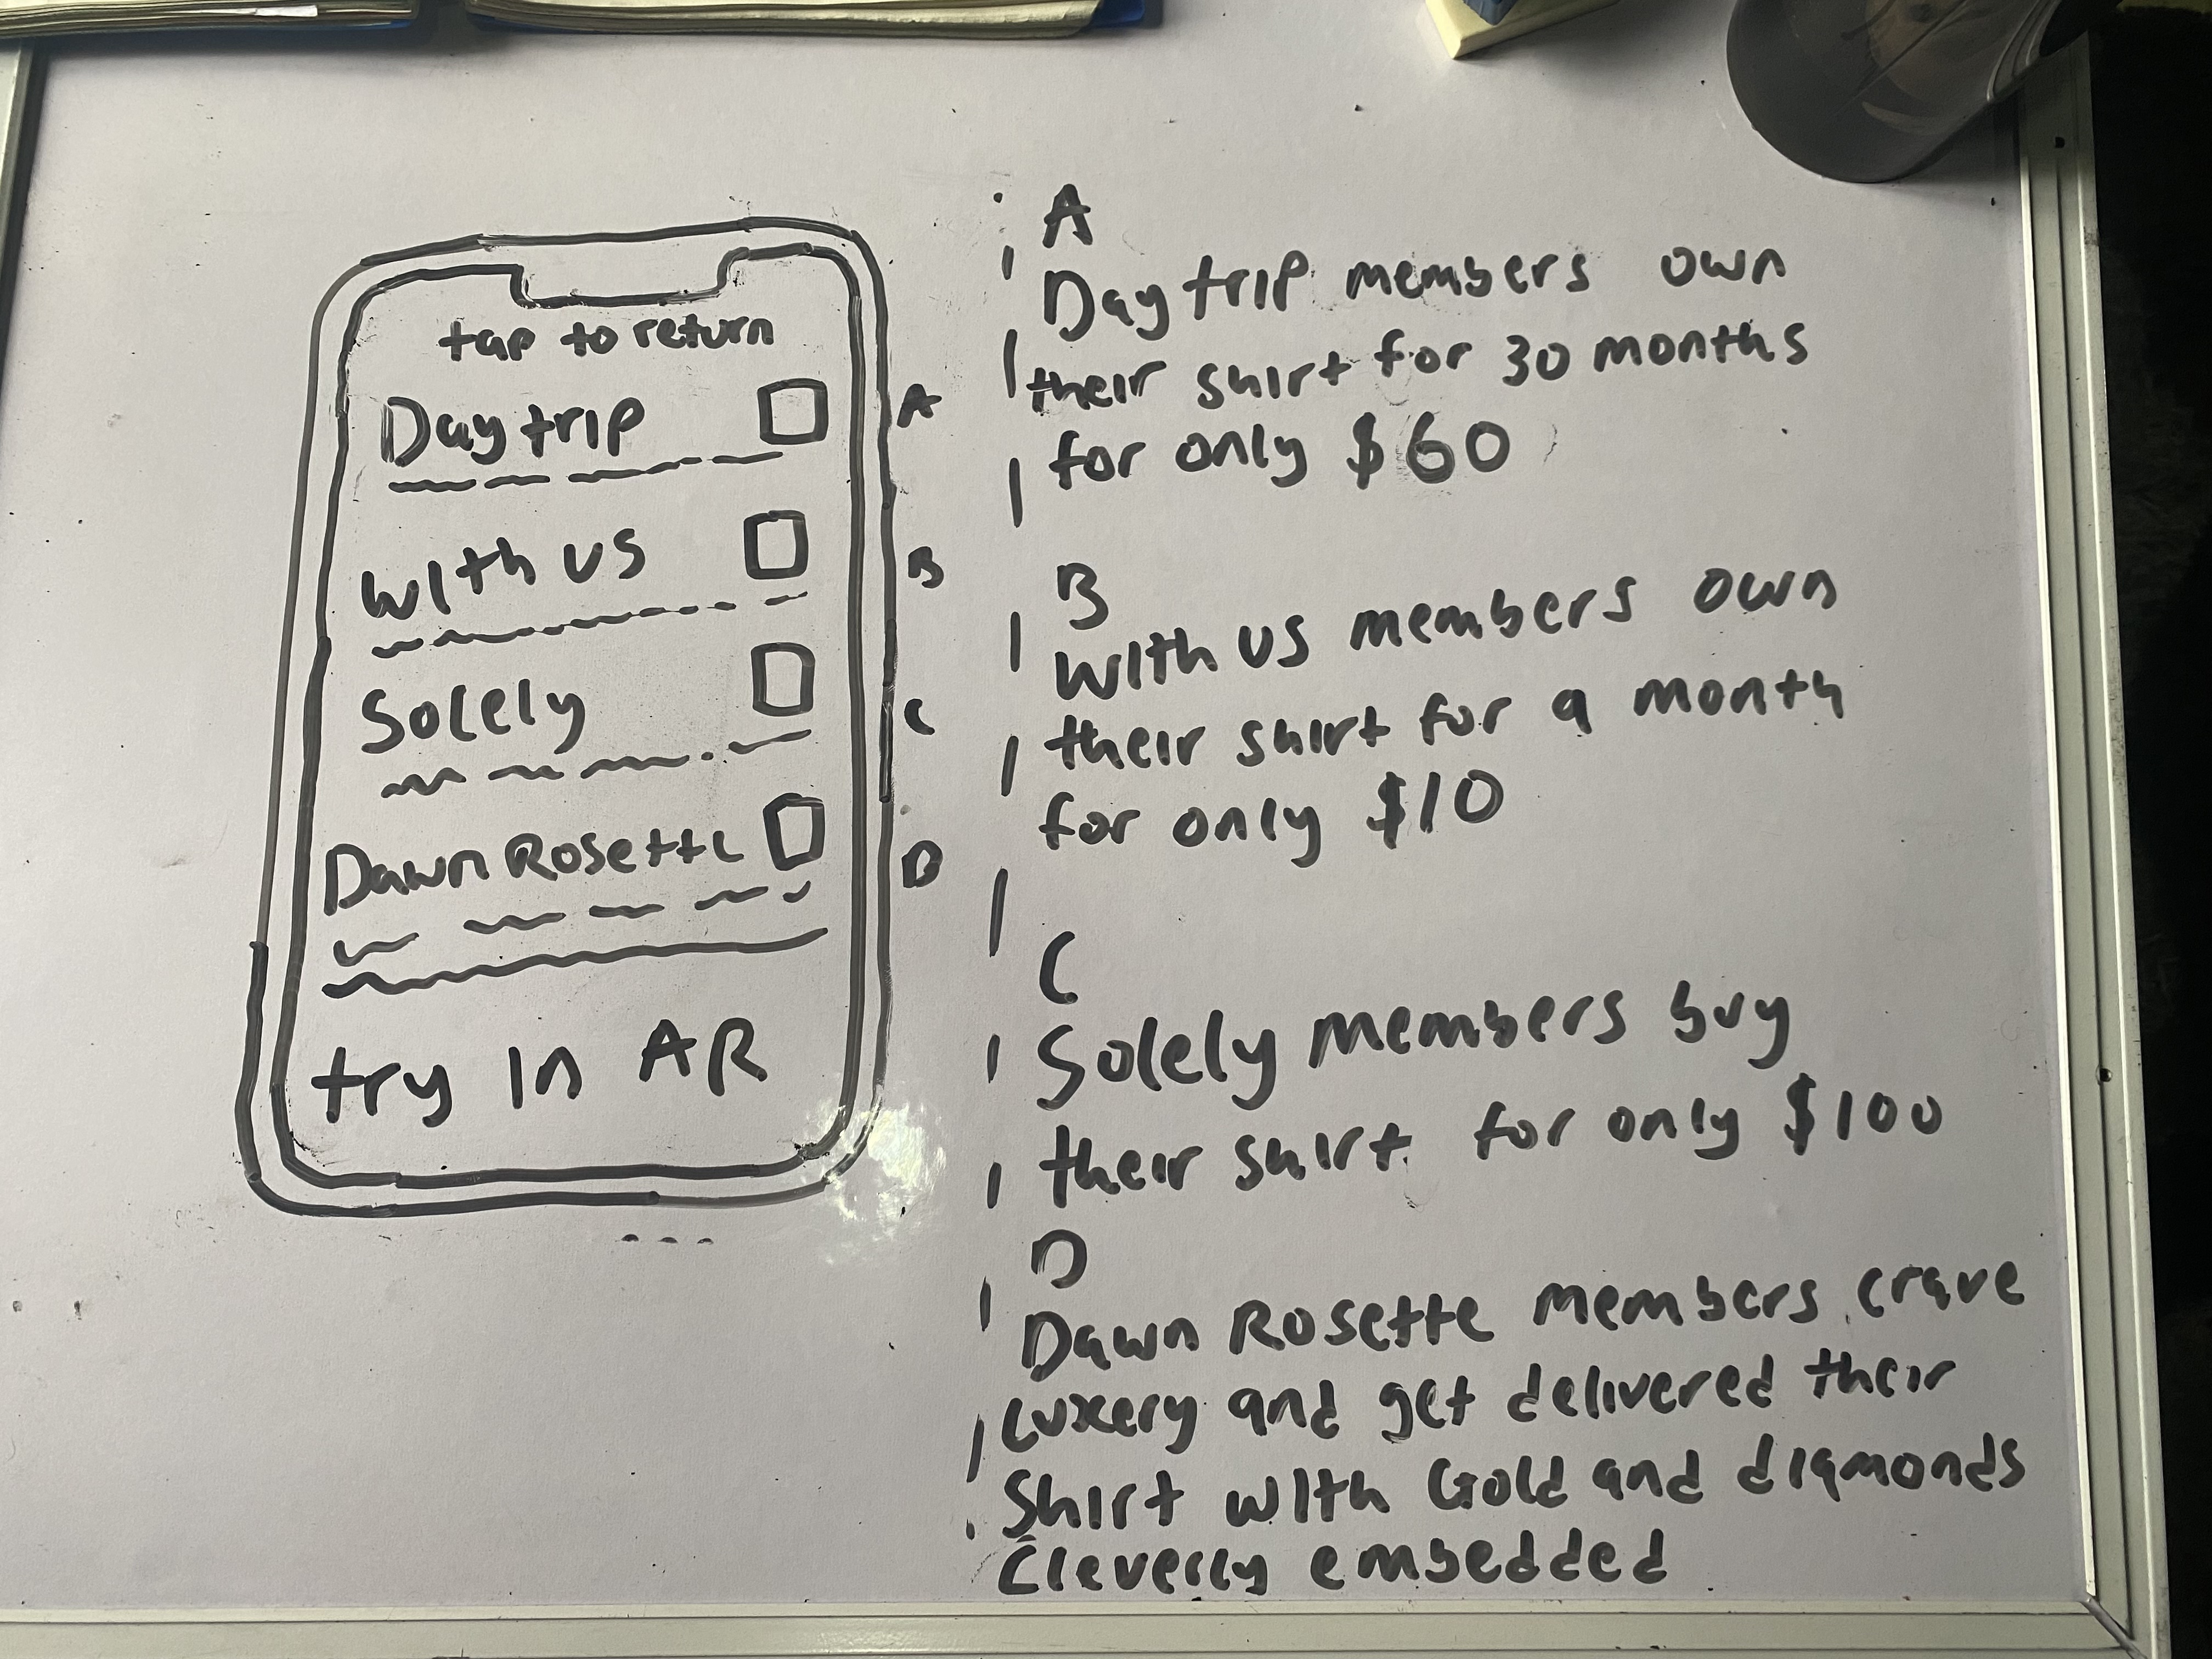 tap to return
Day trip
A
With us
B
Solely
C
Dawn Rosette
D
try in AR
A
Day trip members own
their shirt for 30 months
for only $60
B
With us members own
their shirt for a month
for only $10
C
Solely members buy
their shirt for only $100
D
Dawn Rosette members crave
Luxery and get delivered their
Shirt with Gold and diamonds
Cleverly embedded